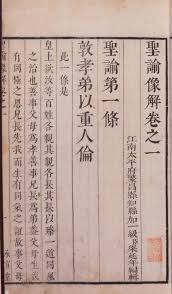 聖諭像解卷之一
江南太平府繁昌縣知縣加一級梁延年編輯
聖諭第一條
敦孝弟以重人倫
此一條是
上欲汝等百姓各親其親各長其長以
之治也善事父母爲孝善事兄長爲弟
有同極之恩兄長先我而生有同氣之誼故事父母
聖諭像解卷之一